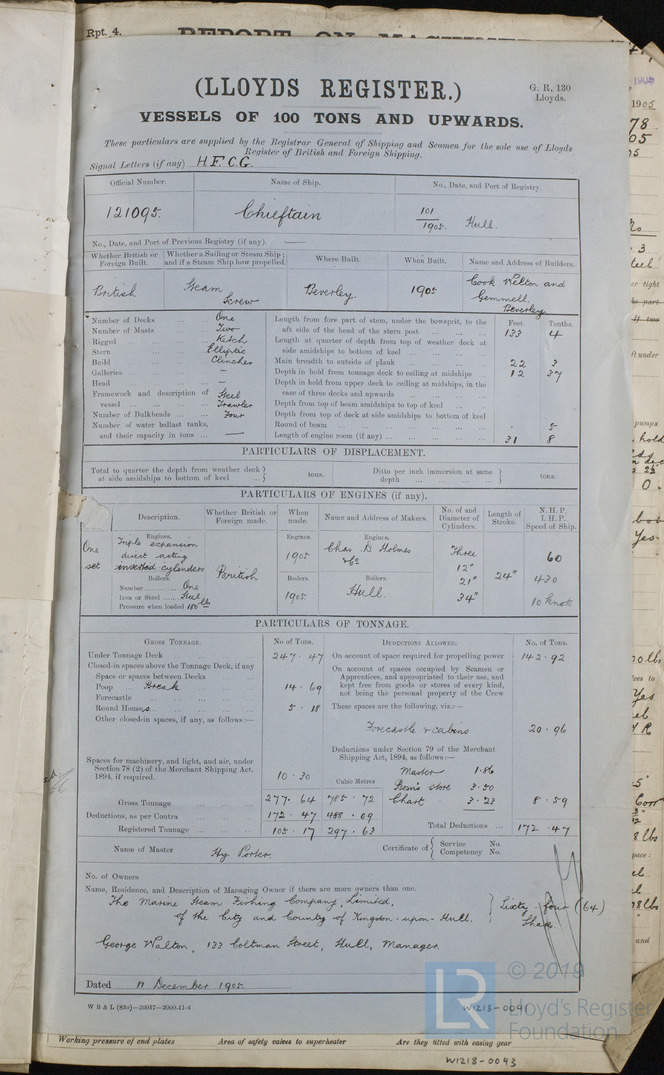 Rpt. 4.
REPORT ON MACHINE
(LLOYDS REGISTER.)
G. R. 130
Lloyds.
VESSELS OF 100 TONS AND UPWARDS.
These particulars are supplied by the Registrar General of Shipping and Seamen for the sole use of Lloyds
Register of British and Foreign Shipping.
Signal Letters (if any) H.F.C.G.
Official Number. Name of Ship. No., Date, and Port of Registry.
121095. Chieftain 101/1905. Hull.
No., Date, and Port of Previous Registry (if any). —
Whether British or Foreign Built. Whether a Sailing or Steam Ship; and if a Steam Ship how propelled. Where Built. When Built. Name and Address of Builders.
British Steam Screw Beverley 1905 Cook Welton and Gemmell, Beverley
Number of Decks ... One
Number of Masts ... Two
Rigged ... Ketch
Stern ... Elliptic
Build ... Clincher
Galleries ... —
Head ... —
Framework and description of vessel ... Steel Trawler
Number of Bulkheads ... Four
Number of water ballast tanks, and their capacity in tons ... —
Feet. Tenths.
Length from fore part of stem, under the bowsprit, to the aft side of the head of the stern post ... 133 4
Length at quarter of depth from top of weather deck at side amidships to bottom of keel ...
Main breadth to outside of plank ... 22 3
Depth in hold from tonnage deck to ceiling at midships ... 12 37
Depth in hold from upper deck to ceiling at midships, in the case of three decks and upwards ...
Depth from top of beam amidships to top of keel ...
Depth from top of deck at side amidships to bottom of keel
Round of beam ... . 5
Length of engine room (if any) ... 31 8
PARTICULARS OF DISPLACEMENT.
Total to quarter the depth from weather deck at side amidships to bottom of keel ... tons. Ditto per inch immersion at same depth ... tons.
PARTICULARS OF ENGINES (if any).
Description. Whether British or Foreign made. When made. Name and Address of Makers. No. of and Diameter of Cylinders. Length of Stroke. N.H.P. I.H.P. Speed of Ship.
Engines. Engines. Engines.
One set Triple expansion direct acting inverted cylinders British 1905 Chas. D. Holmes & Co Three 12" 21" 34" 24" 60 430 10 knots
Boilers. Boilers. Boilers.
Number ... One
Iron or Steel ... Steel 1905 Hull.
Pressure when loaded 180 lbs
PARTICULARS OF TONNAGE.
GROSS TONNAGE. No. of Tons. DEDUCTIONS ALLOWED. No. of Tons.
Under Tonnage Deck ... 247 . 47 On account of space required for propelling power 142 . 92
Closed-in spaces above the Tonnage Deck, if any
Space or spaces between Decks ...
Poop ... Break 14 . 69
Forecastle ...
Round House ... 5 . 18
Other closed-in spaces, if any, as follows:—
On account of spaces occupied by Seamen or Apprentices, and appropriated to their use, and kept free from goods or stores of every kind, not being the personal property of the Crew
These spaces are the following, viz.:—
Forecastle & cabins 20 . 96
Deductions under Section 79 of the Merchant Shipping Act, 1894, as follows:—
Spaces for machinery, and light, and air, under Section 78 (2) of the Merchant Shipping Act, 1894, if required. 10 . 30
Cubic Metres
Master 1.86
Bosn's store 3.50
Chart 3.23 8 . 59
Gross Tonnage ... 277 . 64 785 . 72
Deductions, as per Contra ... 172 . 47 488 . 09
Registered Tonnage ... 105 . 17 297 . 63 Total Deductions ... 172 . 47
Name of Master Hy Porter. Certificate of Service No. Competency No.
No. of Owners
Name, Residence, and Description of Managing Owner if there are more owners than one.
The Marine Steam Fishing Company, Limited,
of the City and County of Kingston-upon-Hull. Sixty-four (64) Shares
George Walton, 133 Coltman Street, Hull, Manager.
Dated 11 December 1905.
W B & L (83g)—20017—2000-11-4
W1213-0041
© 2019
LR
Lloyd's Register
Foundation
Working pressure of end plates Area of safety valves to superheater Are they fitted with easing gear
W1218-0043